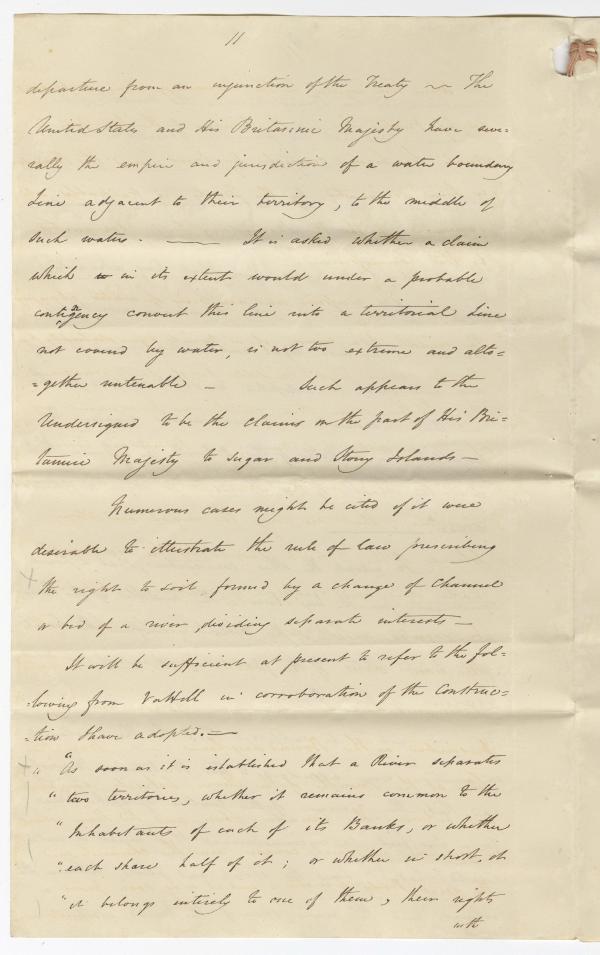 11
departure from an injunction of the Treaty ~ The
United States and His Britannic Majesty have seve-
rally the empire and jurisdiction of a water boundary
Line adjacent to their territory, to the middle of
such waters. — It is asked whether a claim
which in its extent would under a probable
contingency convert this line into a territorial Line
not covered by water, is not too extreme and alto=
=gether untenable — Such appears to the
Undersigned to be the claims on the part of His Bri=
tannic Majesty to Sugar and Stony Islands —
Numerous cases might be cited if it were
desirable to illustrate the rule of law prescribing
the right to soil formed by a change of Channel
or bed of a river dividing separate interests —
It will be sufficient at present to refer to the fol=
=lowing from Vattell in corroboration of the Construc=
=tion I have adopted. —
" "As soon as it is established that a River separates
" two territories, whether it remains common to the
" Inhabitants of each of its Banks, or whether
" each share half of it; or whether in short,
" it belongs entirely to one of them, their rights
with